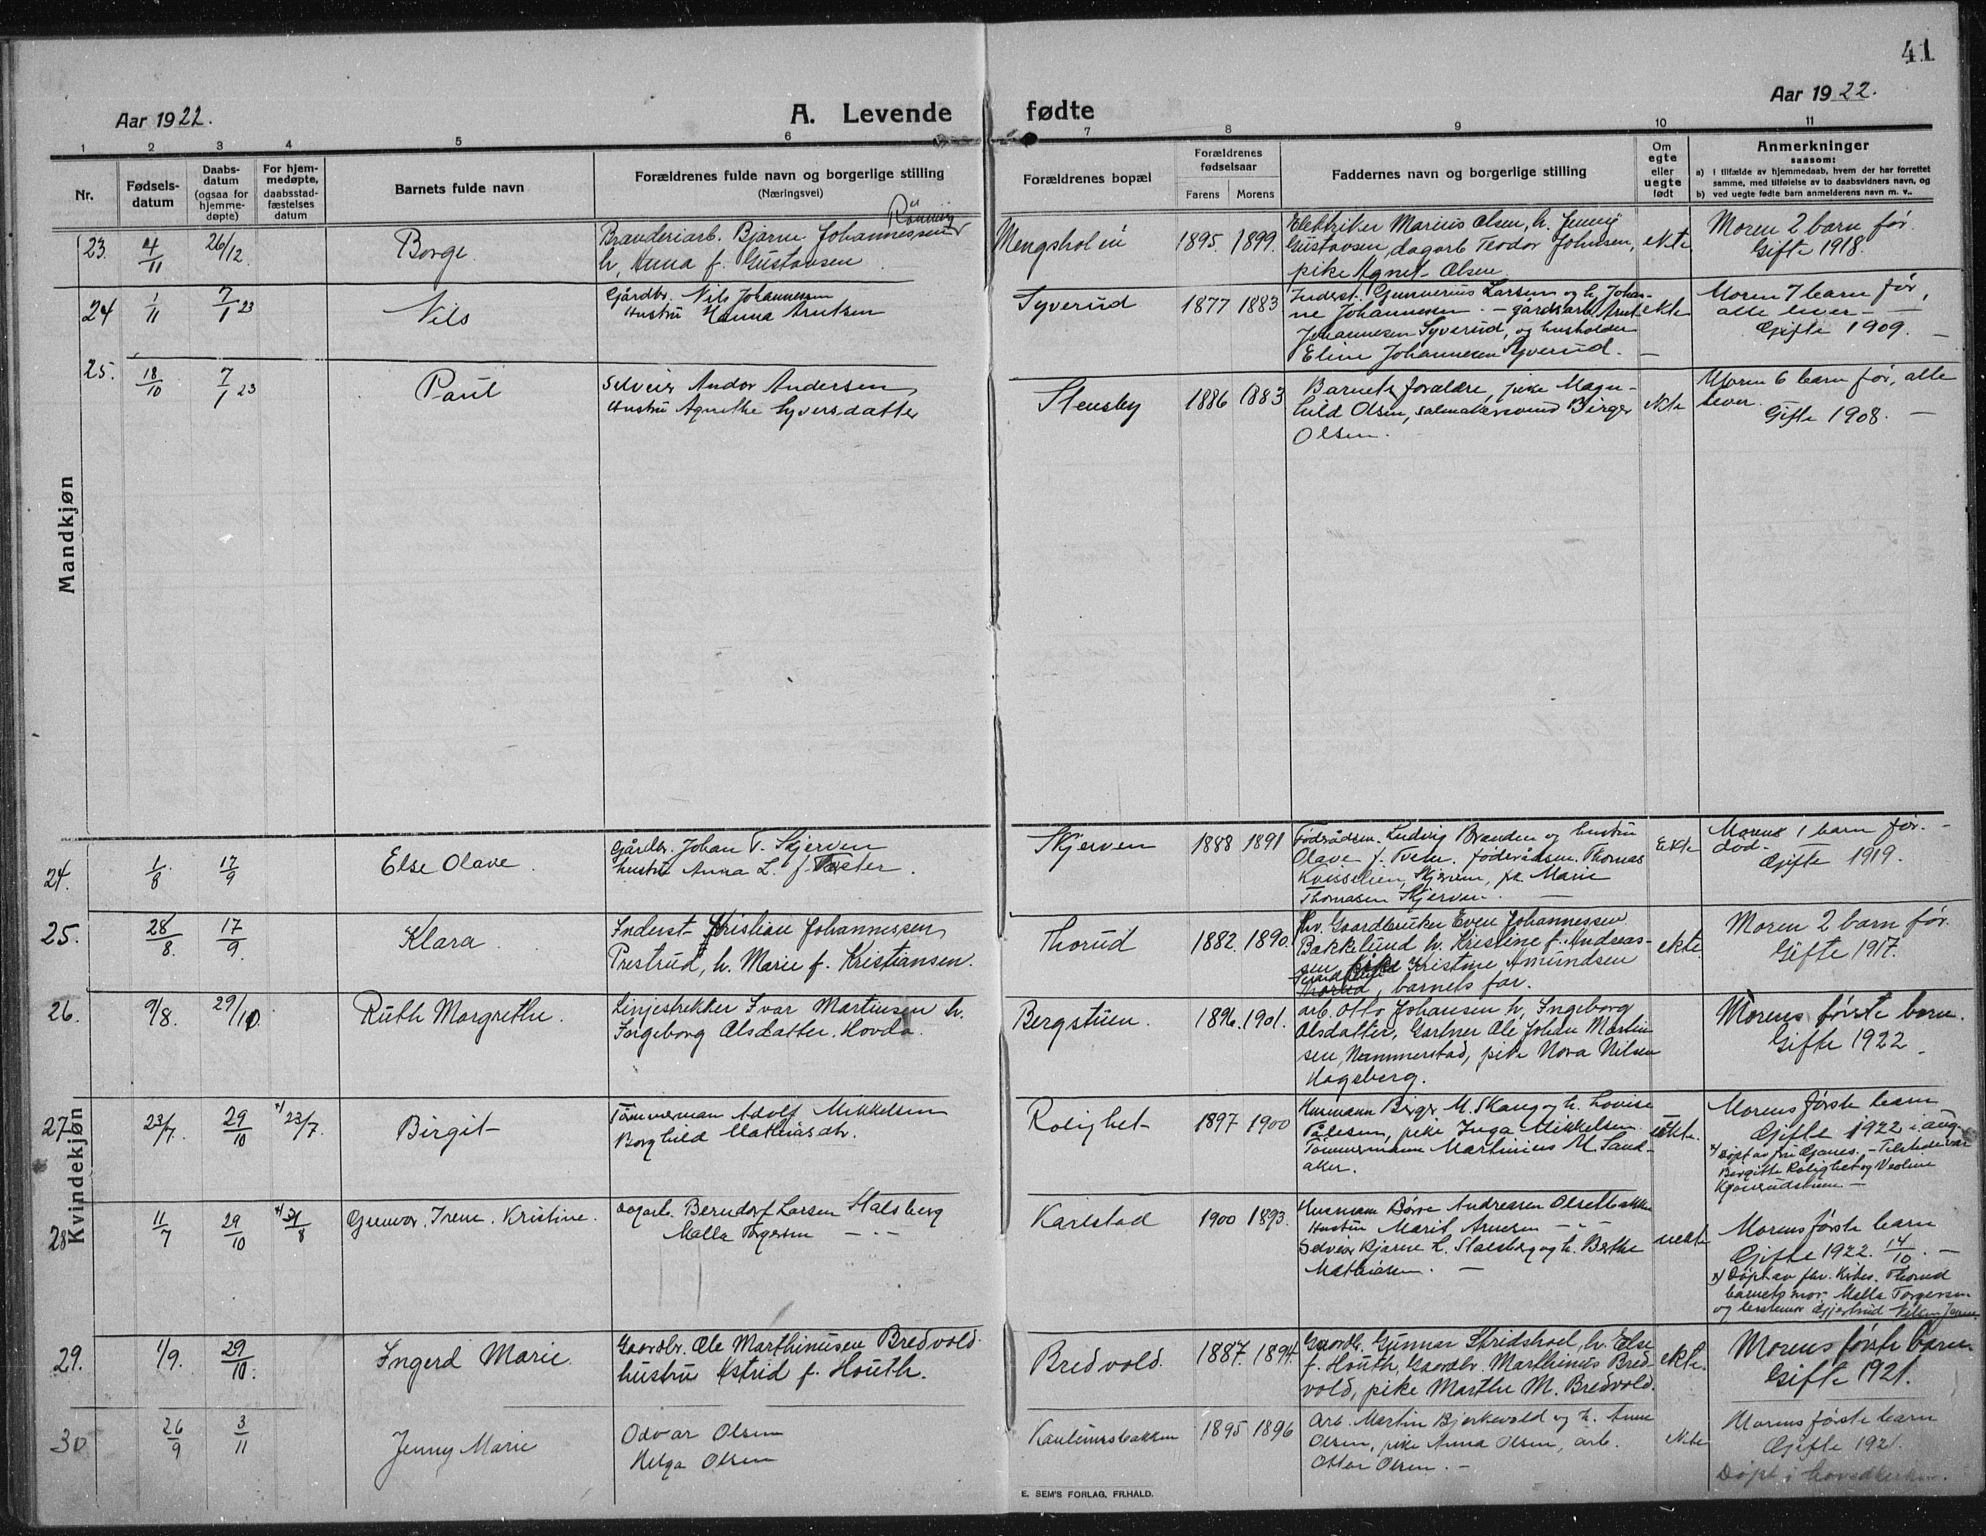 41
Aar 1922.
A. Levende fødte
Aar 1922.
1 2 3 4 5 6 7 8 9 10 11
Nr.
Fødsels-
datum
Daabs-
datum
(ogsaa for
hjemme-
døpte)
For hjem-
medøpte,
daabsstad-
fæstelses
datum
Barnets fulde navn
Forældrenes fulde navn og borgerlige stilling
(Næringsvei)
Forældrenes bopæl
Forældrenes
fødselsaar
Farens Morens
Faddernes navn og borgerlige stilling
Om
egte
eller
uegte
født
Anmerkninger
saasom:
a) i tilfælde av hjemmedaab, hvem der har forrettet
samme, med tilføielse av to daabsvidners navn, og
b) ved uegte fødte barn anmelderens navn m. v..
Mandkjøn
23. 4/11 26/12 Borge
Brænderiarb. Bjarne Johannessen
h. Anna f. Gustavsen
Mengshol 1895 1899
Elektriker Marius Olsen, h. Jenny
Gustavsen, dagarb Teodor Johnsen,
pike Agnet Olsen
ekte
Moren 2 barn før.
Gifte 1918.
24 1/11 7/1 23 Nils
Gårdbr. Nils Johannessen
Hustru Hanna Arntsen
Syverud 1877 1883
Inderst. Gunnerius Larsen og h. Johan-
ne Johannesen - gårdsarb. Arnt
Johannesen Syverud, og husholder
Eline Johannesen Syverud.
ekte
Moren 7 barn før,
alle lever
Gifte 1909.
25. 18/10 7/1 23 Paul
Selveier Andor Andersen
Hustru Agnethe Syversdatter
Stensby 1886 1883
Barnets forældre, pike Magn-
hild Olsen, salmakersvend Birger
Olsen.
ekte
Moren 6 barn før, alle
lever.
Gifte 1908.
Kvindekjøn
24. 1/8 17/9 Else Olave
Gårdbr. Johan T. Skjerven
hustru Anna L. f. Toster.
Skjerven 1888 1891
Føderådsm. Ludvig Branden og hustru
Olave f. Tveter. føderådsm. Thomas
Kvisselien, Skjerven, pk Marie
Thomasen Skjerven.
Ekte
Morens 1 barn før.
død.
Gifte 1919.
25. 28/8. 17/9. Klara
Inderst Kristian Johannessen
Prestrud, h. Marie f. Kristiansen.
Thorud 1882. 1890.
Fhv. Gaardbruker Even Johannessen
Bakkelund h. Kristine f. Andreas-
sen, pike Kristine Amundsen
Thorud, barnets far.
ekte.
Moren 2 barn før.
Gifte 1917.
26. 9/8. 29/10. Ruth Margrethe
Linjestrekker Ivar Martinsen h.
Ingeborg Olsdatter. Hovda.
Bergstuen. 1896. 1901.
arb. Otto Johansen h. Ingeborg
Olsdatter, Gartner Ole Johan Martin
sen, Nammerstad, pike Nora Nilsen
Hagsberg.
Morens første barn.
Gifte 1922.
27 23/7. 29/10 x) 23/7. Birgit
Tømmerman Adolf Mikkelsen
Borghild Mathiasdtr.
Rolighet 1897 1900
Husmann Birger M. Skaug og h. Lovise
Pålesen, pike Inga Mikkelsen.
Tømmermann Martinius M. Sand-
aker.
uekte.
Morens første barn
Gifte 1922 i aug.
x) Døpt av fru Gjanes. - Tilstede var
Birgitte Rolighet og Veoline
28 11/7 29/10 Gunvor Irene. Kristine.
dagarb. Berndorf Larsen Stalsberg
Malla Torgersen - " -
Karlstad 1900 1893.
Husmann Børre Andreasen Olsetbakken
Hustru Marit Arnesen - " -
Selveier Bjarne L. Stalsberg og h. Berthe
Mathiasen.
uekte
Morens første barn
Gifte 1922. 14/10.
x) Døpt av fhv. Kirkes. Thorud
barnets mor Malla Torgersen
og bestemor Gjertrud
29. 1/9. 29/10. Ingerd Marie.
Gaardbr. Ole Marthinusen Bredvold.
hustru Astrid f. Houth.
Bredvold. 1887. 1894.
Gaardbr. Gunnar Stridshoel, h. Else
f. Houth, Gaardbr. Marthinus Bred-
vold, pike Marthe M. Bredvold.
ekte.
Morens første barn
Gifte 1921.
30 26/9 3/11 Jenny Marie
Odvar Olsen
Helga Olsen
1895 1896
Arb. Martin Bjerkevold og h. Anne
Olsen, pike Anna Olsen, arb.
Ottar Olsen.
ekte
Morens første barn
Gifte 1921.
Døpt i hovedkirken.
E. SEM'S FORLAG, FR.HALD.